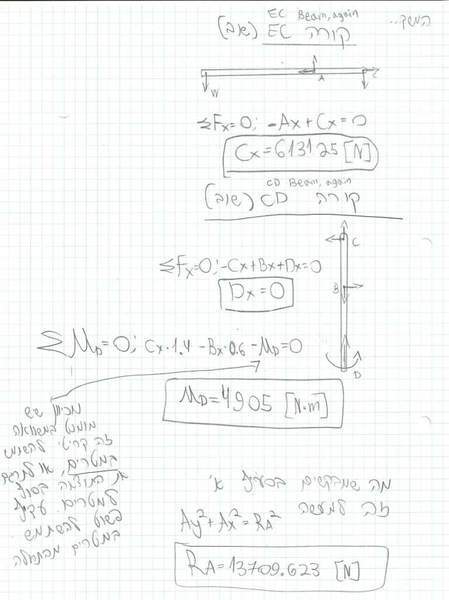 המשך...
EC Beam, again
קורה EC (שוב)
A
C
W
ΣFx=0; -Ax+Cx=0
Cx=6131.25 [N]
CD Beam, again
קורה CD (שוב)
C
ΣFx=0; -Cx+Bx+Dx=0
B
Dx=0
ΣM_D=0; Cx·1.4 -Bx·0.6 -M_D=0
D
M_D=4905 [N·m]
מכיוון שיש
מומנט במשוואה
זה קריטי להשתמש
במטרים, או לתרגם
את התוצאה בסוף
למטרים. עדיף
פשוט להשתמש
במטרים מהתחלה
מה שמבקשים בסעיף א'
זה למעשה
Ay²+Ax²=R_A²
R_A=13709.623 [N]